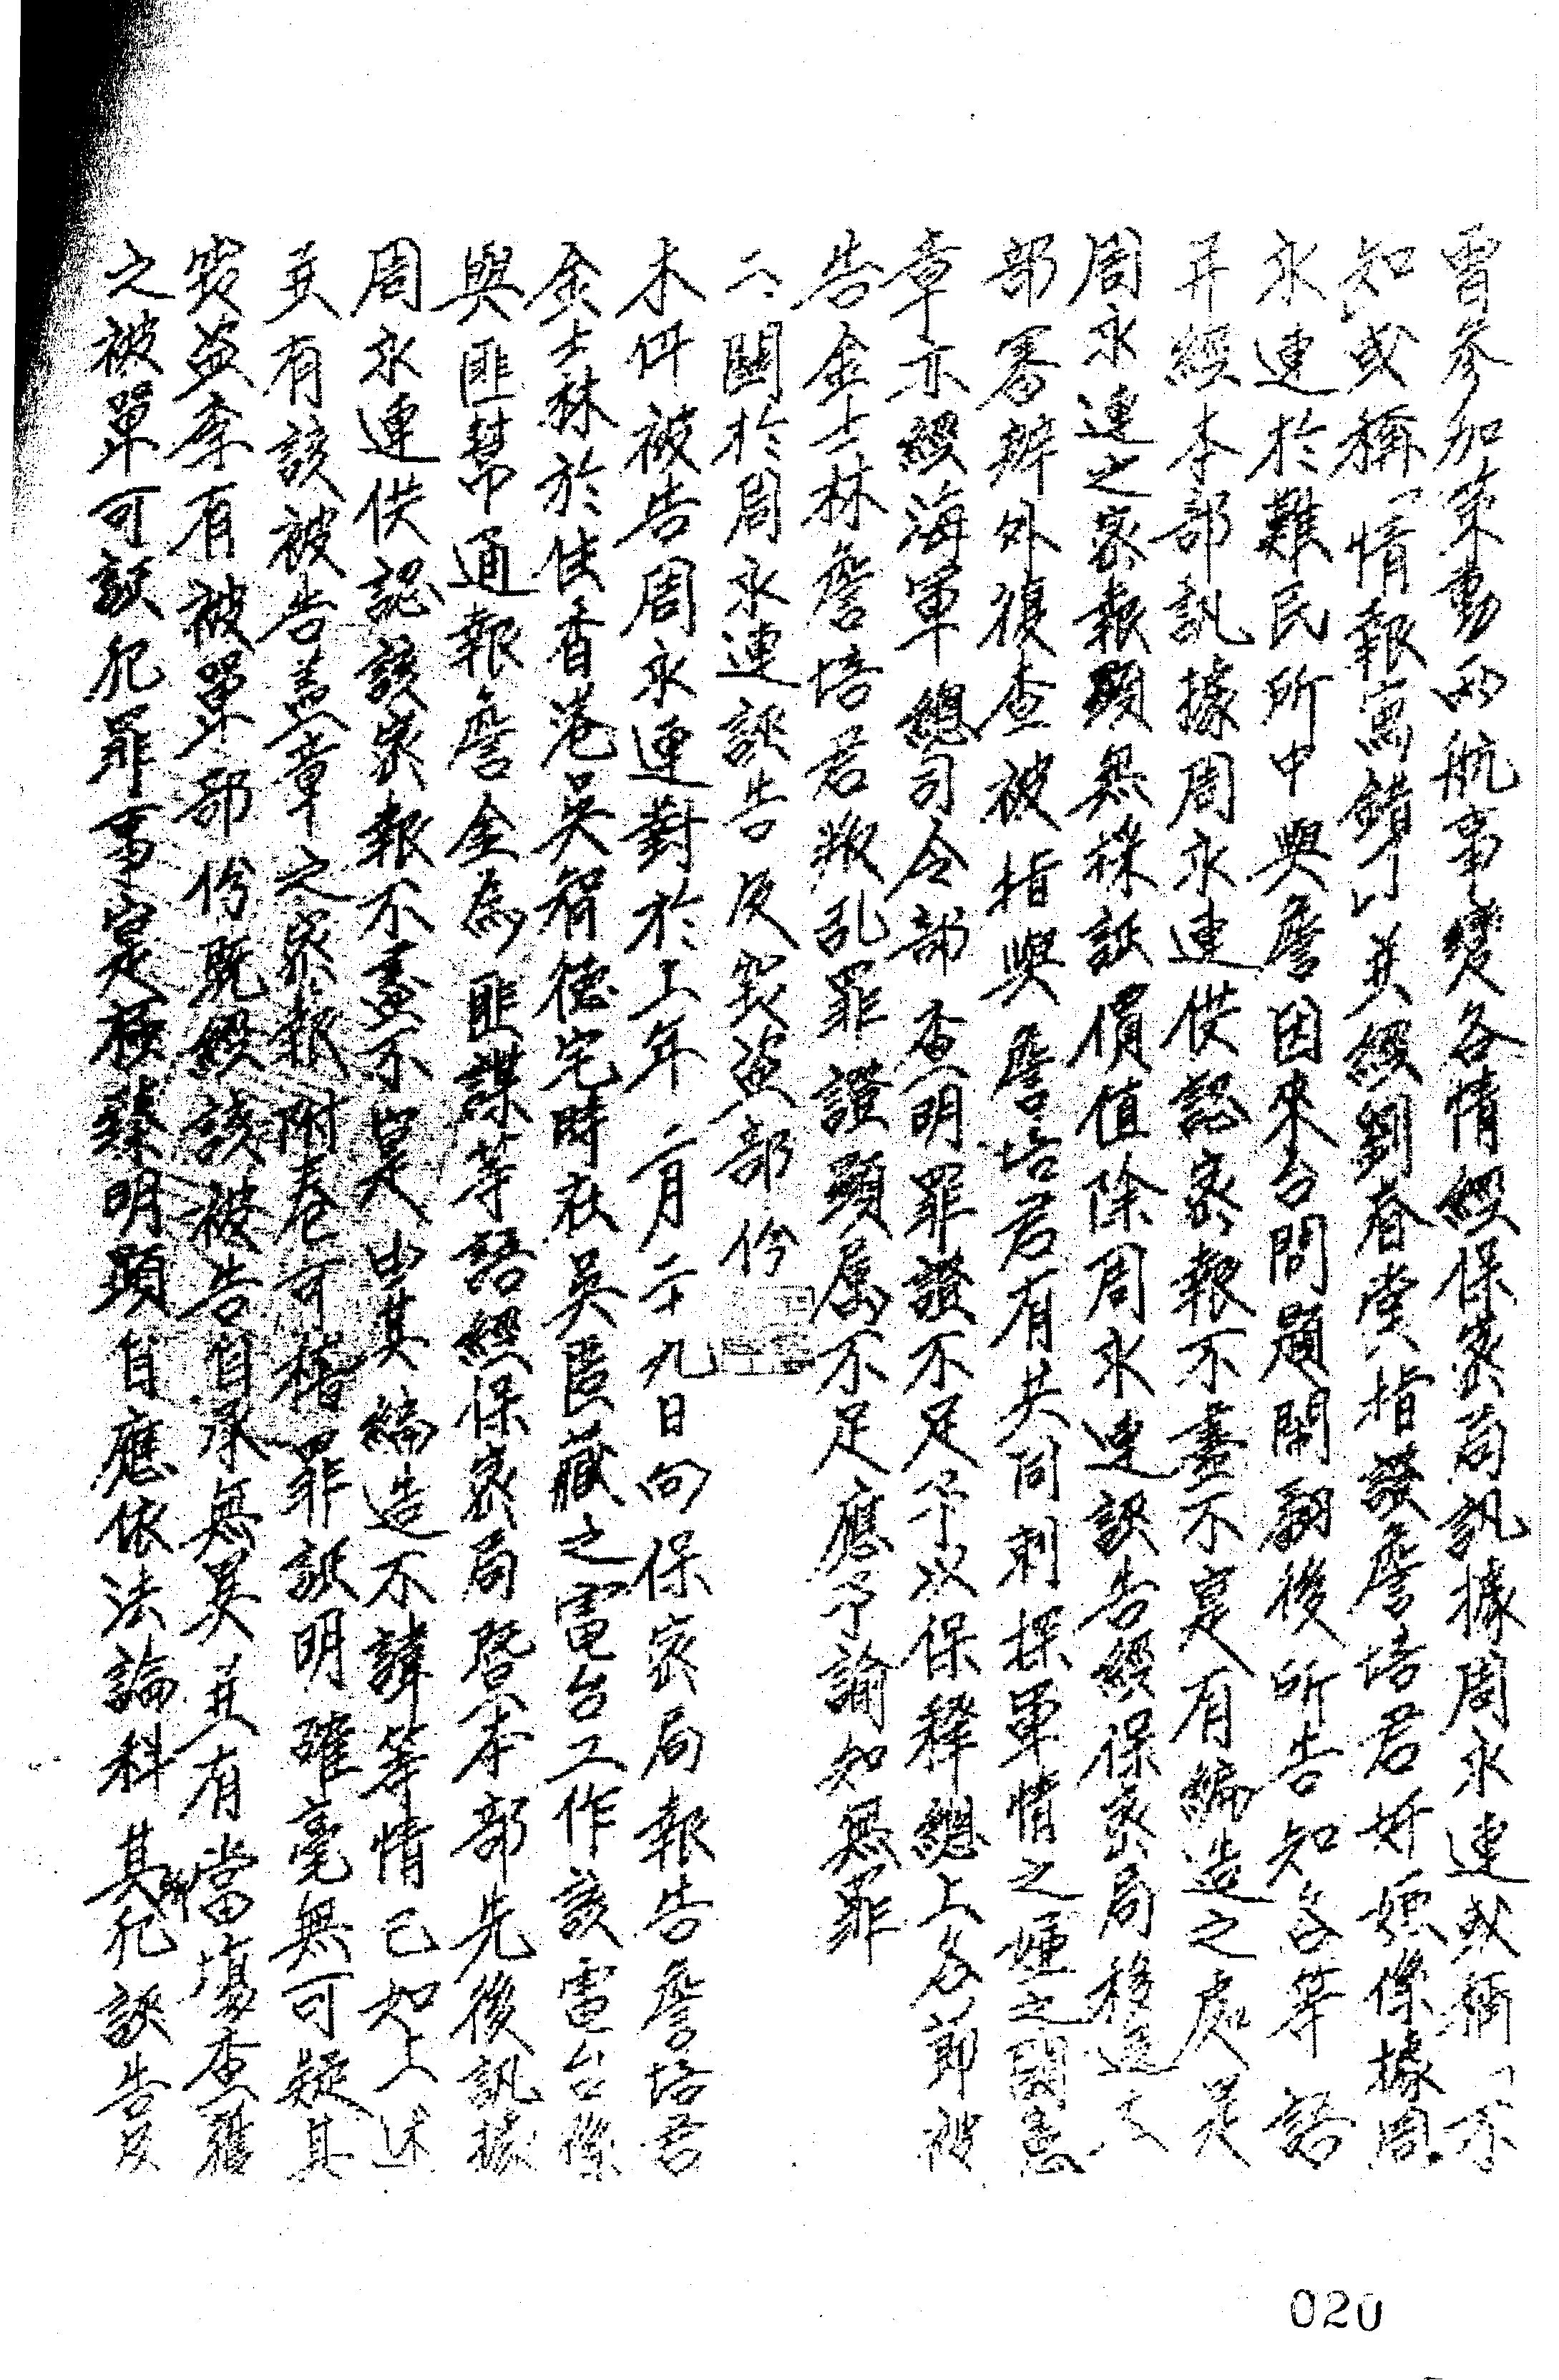 曾參加策動兩航事變各情經保密局訊據周永連或稱「不
知」或稱「情報寫錯了」并經劉春賞指證詹培君奸嫌係據周
永連於難民所中與詹因來台問題鬧翻後所告知各等語
并經本部訊據周永連供認密報不盡不實有編造之處是
周永連之密報顯無採証價值除周永連誣告經保密局移送本
部審辦外復查被指與詹培君有共同刺探軍情之嫌之關憲
章亦經海軍總司令部查明罪證不足予以保釋總上各節被
告金士林詹培君叛乱罪證顯屬不足應予諭知無罪
二、關於周永連誣告及竊盜部份
本件被告周永連對於上年二月二十九日向保密局報告詹培君
金士林於住香港吳智德宅時在吳臣藏之電台工作該電台係
與匪幫通報詹金為匪諜等語經保密局暨本部先後訊據
周永連供認該密報不盡不實由其編造不諱等情已如上述
并有該被告盖章之密報附卷可稽罪証明確毫無可疑其
竊盜李有被單部份既經該被告自承無異并有當場查獲
之被單可証犯罪事實極臻明顯自應依法論科其所犯誣告及
020